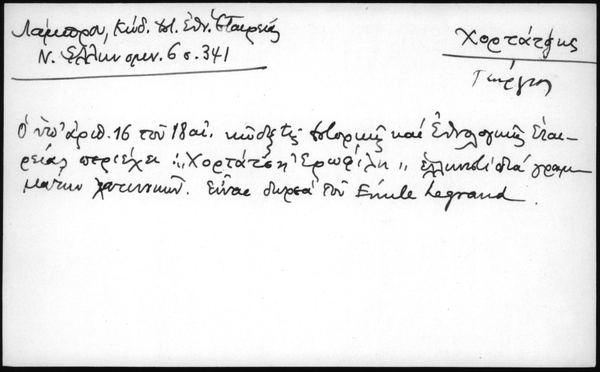 Λάμπρου, Κώδ. Ἱστ. Ἐθν. Ἑταιρείας
Ν. Ἑλλην ομν. 6 σ. 341
Χορτάτζης
Γεώργιος
Ὁ ὑπ' ἀριθ. 16 τοῦ 18 αἰ. κῶδιξ τῆς Ἱστορικῆς καὶ Ἐθνολογικῆς Ἑται-
ρείας περιέχει „Χορτάτζη Ἐρωφίλη„ ἑλληνιστὶ διὰ γραμ-
μάτων λατινικῶν. Εἶναι δωρεὰ τοῦ Emile Legrand.